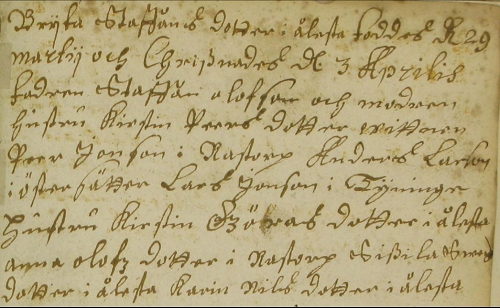 Brÿta Staffans dotter i ålesta föddes d 29
martij och Chrißnades d 3 Aprilis
fadren Staffan olofson och modren
hustru Kirstin Peers dotter wittnen
Peer Jonson i Rastorp Anders Larson
i östersätter Lars Jonson i Tÿninge
hustru Kirstin Göras dotter i ålesta
anna olofz dotter i Rastorp Sißila Swens
dotter i ålesta Karin Nils dotter i ålesta